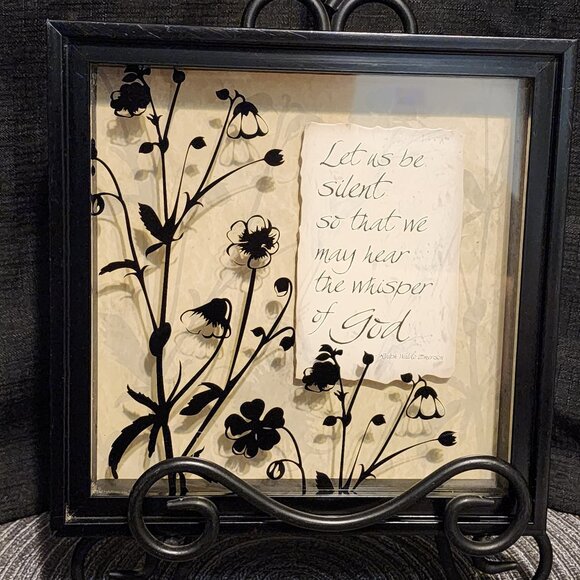 Let us be
silent
so that we
may hear
the whisper
of God
Ralph Waldo Emerson